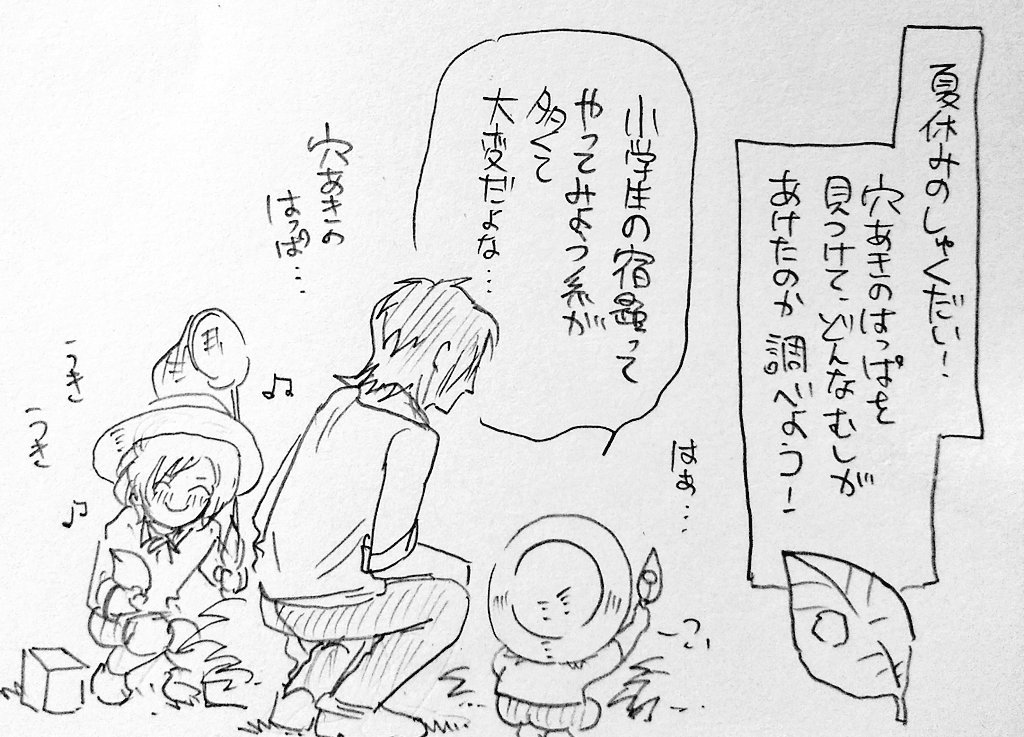 夏休みのしゃくだい！
穴あきのはっぱを
見つけて、どんなむしが
あけたのか調べよう！
小学生の宿題って
やってみよう系が
多くて
大変だよな…
はぁ…
穴あきの
はっぱ…
うき
うき